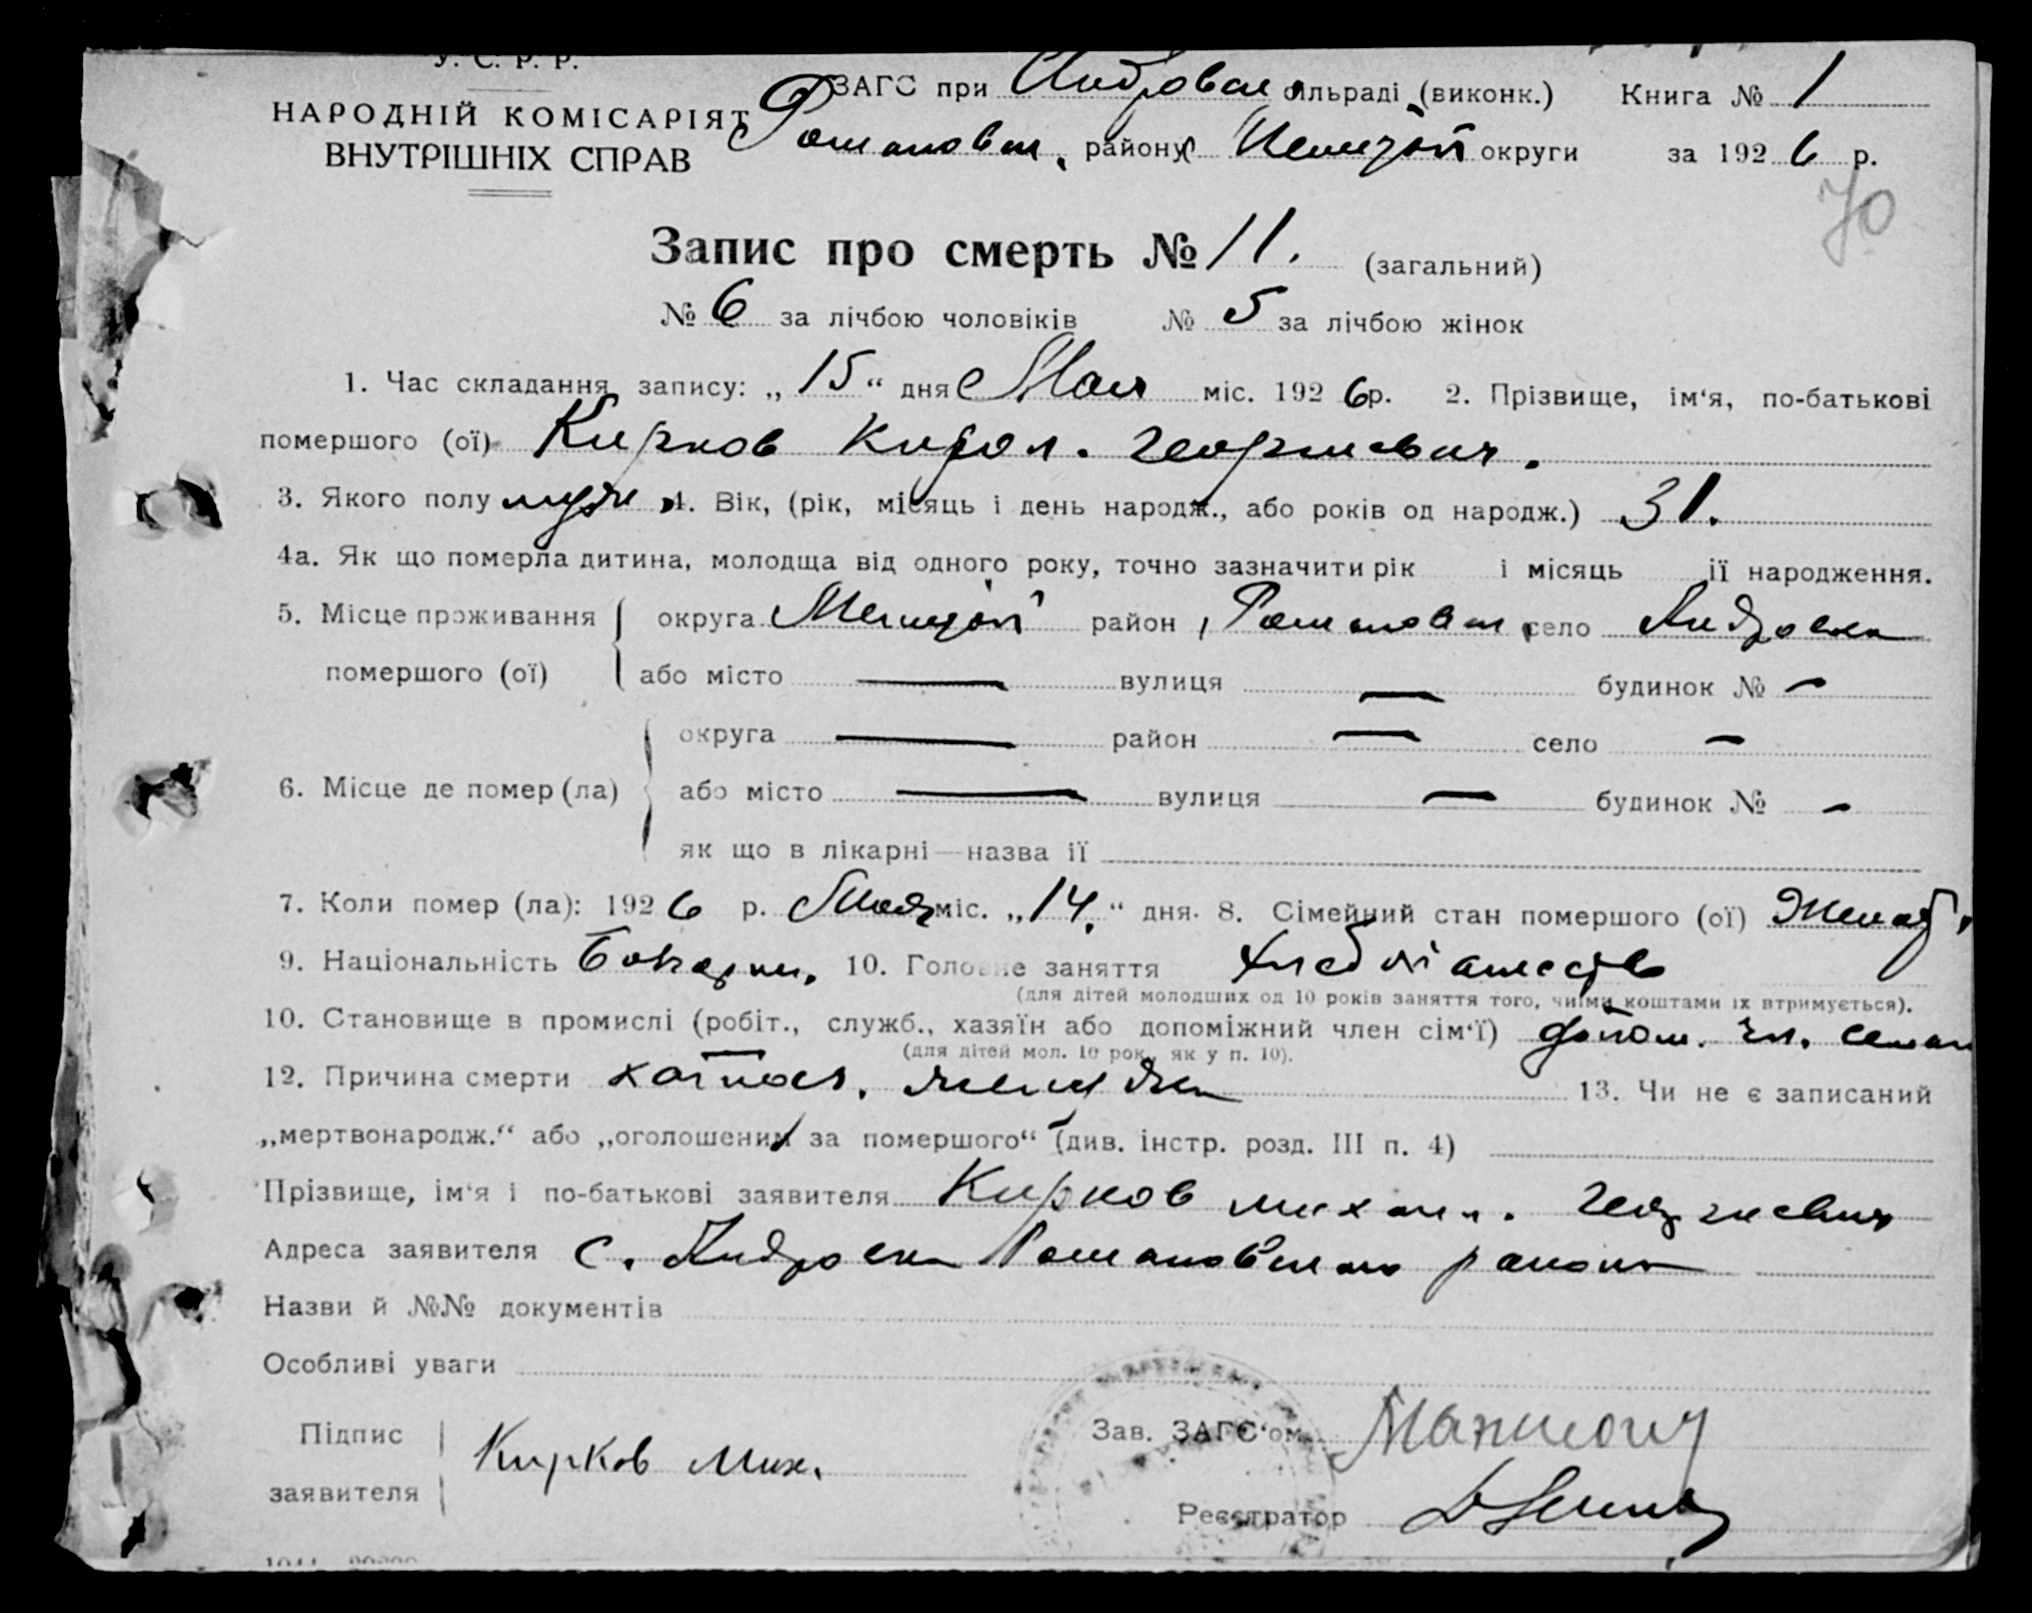 У. С. Р. Р.
НАРОДНІЙ КОМІСАРІЯТ
ВНУТРІШНІХ СПРАВ
ЗАГС при Андровск. сільраді (виконк.) Книга № 1
Романовск. району Мелитоп округи за 1926 р.
70
Запис про смерть № 11. (загальний)
№ 6 за лічбою чоловіків № 5 за лічбою жінок
1. Час складання запису: „15“ дня Мая міс. 1926р. 2. Прізвище, ім‘я, по-батькові
помершого (ої) Кирков Кирил. Георгиевич.
3. Якого полу муж. 4. Вік, (рік, місяць і день народж., або років од народж.) 31.
4а. Як що померла дитина, молодща від одного року, точно зазначити рік і місяць її народження.
5. Місце проживання помершого (ої) округа Мелитоп район Романовск село Андровка
або місто — вулиця — будинок № —
6. Місце де помер (ла) округа — район — село —
або місто — вулиця — будинок № —
як що в лікарні—назва її
7. Коли помер (ла): 1926 р. Мая міс. „14.“ дня. 8. Сімейний стан помершого (ої) Женат.
9. Національність Болгарин. 10. Головне заняття хлебопашеств
(для дітей молодших од 10 років заняття того, чиїми коштами їх втримується).
10. Становище в промислі (робіт., служб., хазяїн або допоміжний член сім‘ї) допом. чл. семьи
(для дітей мол. 10 рок., як у п. 10).
12. Причина смерти 13. Чи не є записаний
„мертвонародж.“ або „оголошеним за помершого“ (див. інстр. розд. III п. 4)
Прізвище, ім‘я і по-батькові заявителя Кирков Михаил. Георгиевич
Адреса заявителя с. Андровка Романовского района
Назви й №№ документів
Особливі уваги
Підпис заявителя Кирков Мих.
Зав. ЗАГС‘ом
Реєстратор